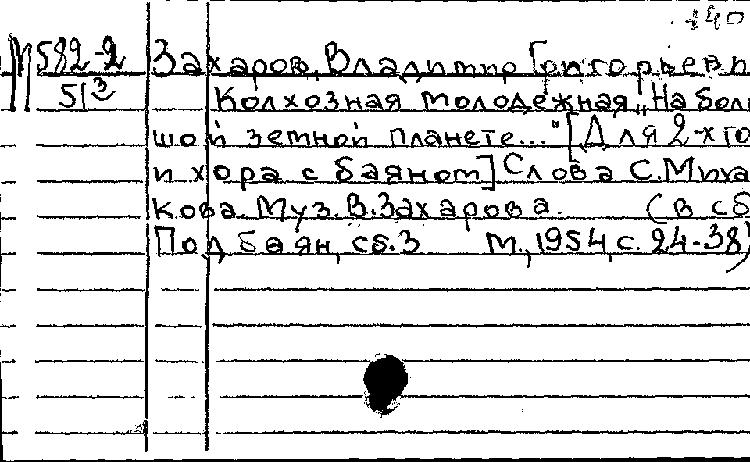 140
М 582-2 Захаров, Владимир Григорьеви
51 3 Колхозная молодежная „На боль
шой земной планете..." [Для 2-х го
и хора с баяном] Слова С. Миха
кова. Муз. В. Захарова. (в сб
Под баян, сб. 3 М., 1954, с. 24-38)